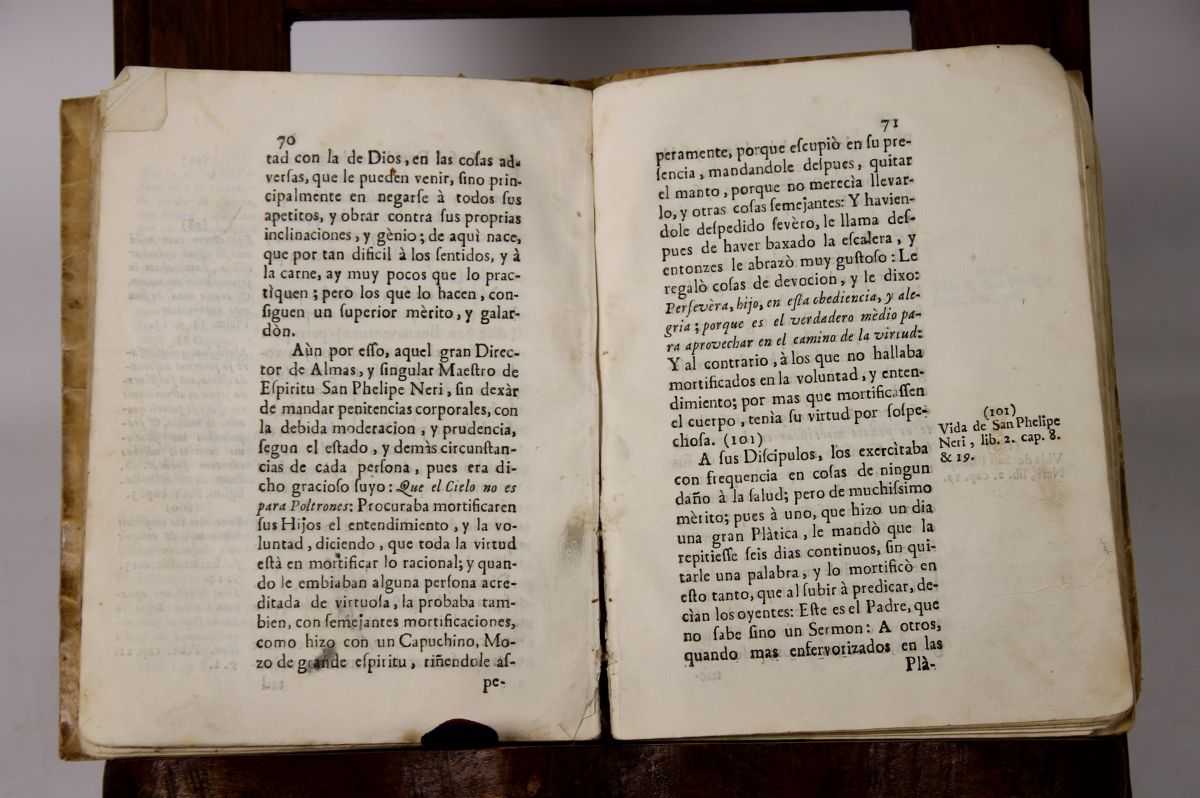 70
tad con la de Dios, en las coſas ad-
verſas, que le pueden venir, ſino prin-
cipalmente en negarſe à todos ſus
apetitos, y obrar contra ſus proprias
inclinaciones, y gènio; de aquì nace,
que por tan dificil à los ſentidos, y à
la carne, ay muy pocos que lo prac-
tiquen; pero los que lo hacen, con-
ſiguen un ſuperior mèrito, y galar-
dòn.
Aùn por eſſo, aquel gran Direc-
tor de Almas, y ſingular Maeſtro de
Eſpiritu San Phelipe Neri, ſin dexàr
de mandar penitencias corporales, con
la debida moderacion, y prudencia,
ſegun el eſtado, y demàs circunſtan-
cias de càda perſona, pues era di-
cho gracioſo ſuyo: Que el Cielo no es
para Poltrones: Procuraba mortificaren
ſus Hijos el entendimiento, y la vo-
luntad, diciendo, que toda la virtud
eſtà en mortificar lo racional; y quan-
do le embiaban alguna perſona acre-
ditada de virtuoſa, la probaba tam-
bien, con ſemejantes mortificaciones,
como hizo con un Capuchino, Mo-
zo de grande eſpiritu, riñendole aſ-
pe-
71
peramente, porque eſcupiò en ſu pre-
ſencia, mandandole deſpues, quitar
el manto, porque no merecìa llevar-
lo, y otras coſas ſemejantes: Y havien-
dole deſpedido ſevèro, le llama deſ-
pues de haver baxado la eſcalera, y
entonzes le abrazò muy guſtoſo: Le
regalò coſas de devocion, y le dixo:
Perſevèra, hijo, en eſta obediencia, y ale-
gria; porque es el verdadero mèdio pa-
ra aprovechar en el camino de la virtud:
Y al contrario, à los que no hallaba
mortificados en la voluntad, y enten-
dimiento; por mas que mortificaſſen
el cuerpo, tenìa ſu virtud por ſoſpe-
choſa. (101)
(101)
Vida de San Phelipe
Neri, lib. 2. cap. 8.
& 19.
A ſus Diſcipulos, los exercitaba
con frequencia en coſas de ningun
daño à la ſalud; pero de muchiſsimo
mèrito; pues à uno, que hizo un dia
una gran Plàtica, le mandò que la
repitieſſe ſeis dias continuos, ſin qui-
tarle una palabra, y lo mortificò en
eſto tanto, que al ſubir à predicar, de-
cìan los oyentes: Eſte es el Padre, que
no ſabe ſino un Sermon: A otros,
quando mas enfervorizados en las
Plà-